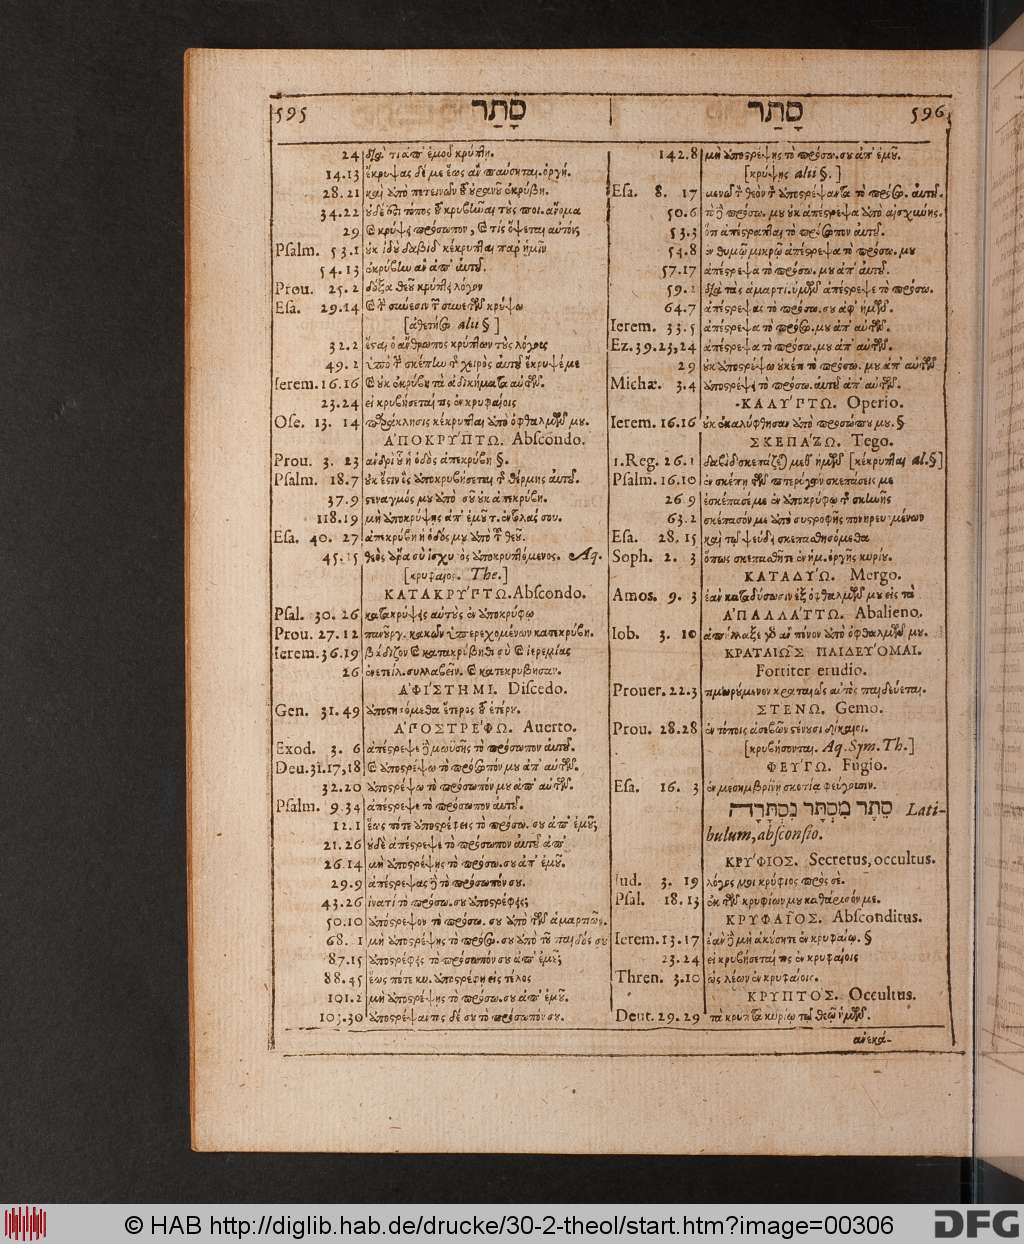 595 סָתַר
24 διατί ἀπ' ἐμοῦ κρύπτῃ.
14.13 ἔκρυψας δέ με ἕως ἂν παύσηται ὀργή.
28.21 καὶ ἀπὸ πετεινῶν τοῦ οὐρανοῦ ἐκρύβη.
34.22 οὐδὲ ἔσται τόπος τοῦ κρυβῶαι τοὺς ποι. ἄνομα
29 καὶ κρύψει πρόσωπον, καὶ τίς ὄψεται αὐτόν;
Psalm. 53.1 οὐκ ἰδοὺ δαβὶδ κέκρυπται παρ' ἡμῖν
54.13 ἐκρύβlω ἂν ἀπ' αὐτοῦ.
Prou. 25.2 δόξα θεοῦ κρύπτει λόγον
Esa. 29.14 καὶ τὴν σύνεσιν τῶν συνετῶν κρύψω
[ἀθετήσω alii §]
32.2 ἔσται ὁ ἄνθρωπος κρύπτων τοὺς λόγους
49.2 ὑπὸ τὴν σκέπlω τῆς χειρὸς αὐτοῦ ἔκρυψέ με
Ierem. 16.16 καὶ οὐκ ἐκρύβη τὰ ἀδικήματα αὐτῶν.
23.24 εἰ κρυβήσεταί τις ἐν κρυφαίοις
Ose. 13. 14 παράκλησις κέκρυπται ἀπὸ ὀφθαλμῶν μου.
ἈΠΟΚΡΥΠΤΩ. Abscondo.
Prou. 3. 23 ἀνδρὶ οὗ ἡ ὁδὸς ἀπεκρύβη §.
Psalm. 18.7 οὐκ ἔστιν ὃς ἀποκρυβήσεται τῆς θέρμης αὐτοῦ.
37.9 στεναγμός μου ἀπὸ σοῦ οὐκ ἀπεκρύβη.
118.19 μὴ ἀποκρύψῃς ἀπ' ἐμοῦ τ. ἐντολάς σου.
Esa. 40. 27 ἀπεκρύβη ἡ ὁδός μου ἀπὸ τοῦ θεοῦ.
45.15 θεὸς ἄρα σὺ ἰσχυρὸς ἀποκρυπτόμενος. Aq.
[κρυφαῖος. The.]
ΚΑΤΑΚΡΥΠΤΩ. Abscondo.
Psal. 30. 26 κατακρύψεις αὐτοὺς ἐν ἀποκρύφῳ
Prou. 27.12 πανοῦργ. κακῶν ἐπερχομένων κατεκρύβη.
Ierem. 36.19 βάδιζον καὶ κατακρύβηθι σὺ καὶ ἱερεμίας
26 ἐνετείλ. συλλαβεῖν. καὶ κατεκρύβησαν.
ἈΦΙΣΤΗΜΙ. Discedo.
Gen. 31.49 ἀποστησόμεθα ἕτερος τοῦ ἑτέρου.
ἈΠΟΣΤΡΕΦΩ. Auerto.
Exod. 3. 6 ἀπέστρεψε δὲ μωϋσῆς τὸ πρόσωπον αὐτοῦ.
Deu. 31.17,18 καὶ ἀποστρέψω τὸ πρόσωπόν μου ἀπ' αὐτῶν.
32.20 ἀποστρέψω τὸ πρόσωπόν μου ἀπ' αὐτῶν.
Psalm. 9.34 ἀπέστρεψε τὸ πρόσωπον αὐτοῦ.
12.1 ἕως πότε ἀποστρέφεις τὸ πρόσω. σου ἀπ' ἐμοῦ;
21.26 οὐδὲ ἀπέστρεψε τὸ πρόσωπον αὐτοῦ ἀπ'
26.14 μὴ ἀποστρέψῃς τὸ πρόσω. σου ἀπ' ἐμοῦ.
29.9 ἀπέστρεψας δὲ τὸ πρόσωπόν σου.
43.26 ἱνατί τὸ πρόσω. σου ἀποστρέφεις;
50.10 ἀπόστρεψον τὸ πρόσω. σου ἀπὸ τῶν ἁμαρτιῶν.
68. 1 μὴ ἀποστρέψῃς τὸ πρόσω. σου ἀπὸ τοῦ παιδός σου
87.15 ἀποστρέφεις τὸ πρόσωπόν σου ἀπ' ἐμοῦ;
88.45 ἕως πότε κυ. ἀποστρέφῃ εἰς τέλος
101.2 μὴ ἀποστρέψῃς τὸ πρόσω. σου ἀπ' ἐμοῦ.
103.30 ἀποστρέψαντος δέ σου τὸ πρόσωπόν σου.
סָתַר 596
142.8 μὴ ἀποστρέψῃς τὸ πρόσω. σου ἀπ' ἐμοῦ.
[κρύψῃς alii §.]
Esa. 8. 17 μενῶ τὸν θεὸν τὸν ἀποστρέψαντα τὸ πρόσω. αὐτοῦ.
50.6 τὸ δὲ πρόσω. μου οὐκ ἀπέστρεψα ἀπὸ αἰσχύνης.
53.3 ὅτι ἀπέστραπται τὸ πρόσωπον αὐτοῦ.
54.8 ἐν θυμῷ μικρῷ ἀπέστρεψα τὸ πρόσω. μου
57.17 ἀπέστρεψα τὸ πρόσω. μου ἀπ' αὐτοῦ.
59.2 διὰ τὰς ἁμαρτί. ὑμῶν ἀπέστρεψε τὸ πρόσω.
64.7 ἀπέστρεψας τὸ πρόσω. σου ἀφ' ἡμῶν.
Ierem. 33.5 ἀπέστρεψα τὸ πρόσω. μου ἀπ' αὐτῶν.
Ez. 39.23,24 ἀπέστρεψα τὸ πρόσω. μου ἀπ' αὐτῶν.
29 οὐκ ἀποστρέψω οὐκέτι τὸ πρόσω. μου ἀπ' αὐτῶν
Michæ. 3.4 ἀποστρέψει τὸ πρόσω. αὐτοῦ ἀπ' αὐτῶν.
ΚΑΛΥΠΤΩ. Operio.
Ierem. 16.16 οὐκ ἐκαλύφθησαν ἀπὸ προσώπου μου. §
ΣΚΕΠΑΖΩ. Tego.
1.Reg. 26.1 δαβὶδ σκεπάζεται μεθ' ἡμῶν [κέκρυπται al. §]
Psalm. 16.10 ἐν σκέπῃ τῶν πτερύγων σκεπάσεις με
26 9 ἐσκέπασέ με ἐν ἀποκρύφῳ τῆς σκηνῆς
63.2 σκέπασόν με ἀπὸ συστροφῆς πονηρευομένων
Esa. 28. 15 καὶ τῷ ψεύδει σκεπασθησόμεθα
Soph. 2. 3 ὅπως σκεπασθῆτε ἐν ἡμ. ὀργῆς κυρίου.
ΚΑΤΑΔΥΩ. Mergo.
Amos. 9. 3 ἐὰν καταδύσωσιν ἐξ ὀφθαλμῶν μου εἰς τὰ
ἈΠΑΛΛΑΤΤΩ. Abalieno.
Iob. 3. 10 ἀπήλλαξε γὰρ ἂν πόνον ἀπὸ ὀφθαλμῶν μου.
ΚΡΑΤΑΙΩΣ ΠΑΙΔΕΥΟΜΑΙ.
Fortiter erudio.
Prouer. 22.3 τιμωρούμενον κραταιῶς αὐτὸς παιδεύεται.
ΣΤΕΝΩ. Gemo.
Prou. 28.28 ἐν τόποις ἀσεβῶν στένουσι δίκαιοι.
[κρυβήσονται. Aq. Sym. Th.]
ΦΕΥΓΩ. Fugio.
Esa. 16. 3 ἐν μεσημβρινῇ σκοτίᾳ φεύγουσιν.
סֵתֶר מִסְתָּר נִסְתָּרָה Lati-
bulum, absconsio.
ΚΡΥΦΙΟΣ. Secretus, occultus.
Iud. 3. 19 λόγος μοι κρύφιος πρὸς σέ.
Psal. 18.13 ἐκ τῶν κρυφίων μου καθάρισόν με.
ΚΡΥΦΑΙΟΣ. Absconditus.
Ierem. 13.17 ἐὰν δὲ μὴ ἀκούσητε ἐν κρυφαίῳ. §
23.24 εἰ κρυβήσεταί τις ἐν κρυφαίοις
Thren. 3.10 ὡς λέων ἐν κρυφαίοις.
ΚΡΥΠΤΟΣ. Occultus.
Deut. 29. 29 τὰ κρυπτὰ κυρίῳ τῷ θεῷ ἡμῶν.
ἀνεκά-
© HAB http://diglib.hab.de/drucke/30-2-theol/start.htm?image=00306
DFG